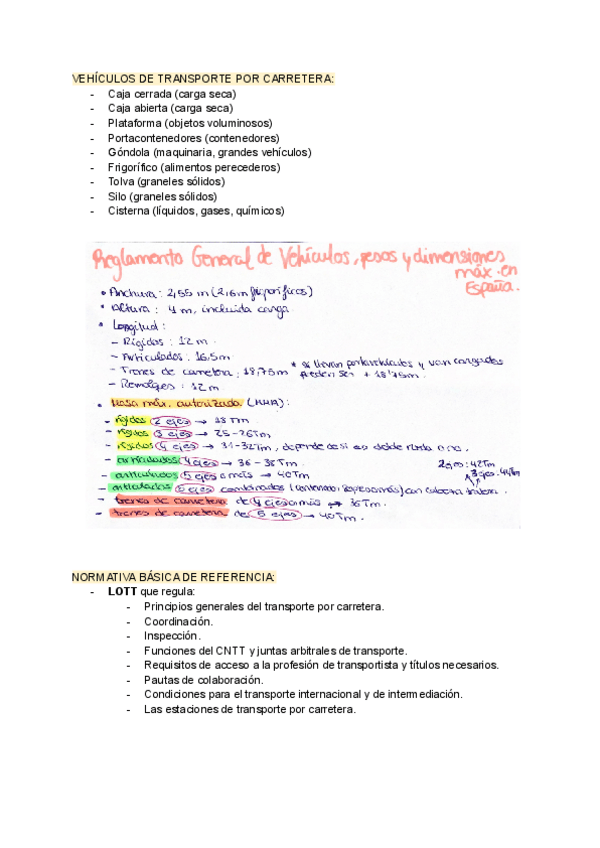 VEHÍCULOS DE TRANSPORTE POR CARRETERA:
- Caja cerrada (carga seca)
- Caja abierta (carga seca)
- Plataforma (objetos voluminosos)
- Portacontenedores (contenedores)
- Góndola (maquinaria, grandes vehículos)
- Frigorífico (alimentos perecederos)
- Tolva (graneles sólidos)
- Silo (graneles sólidos)
- Cisterna (líquidos, gases, químicos)
Reglamento General de Vehículos, pesos y dimensiones
máx. en
España.
• Anchura: 2,55 m (2,6m frigoríficos)
• Altura: 4 m, incluida carga.
• Longitud:
- Rígidos: 12 m
- Articulados: 16,5m
- Trenes de carretera: 18,75m * si llevan portavehículos y van cargados
pueden ser + 18'75m.
- Remolques: 12 m
• Masa máx. autorizada (MMA):
- rígidos 2 ejes → 18 Tm
- rígidos 3 ejes → 25-26Tm
- rígidos 4 ejes → 31-32Tm, depende de si es doble rueda o no.
- articulados 4 ejes → 36-38Tm. 2 ejes: 42Tm
- articulados 5 ejes o más → 40Tm 3 ejes: 44Tm
- articulados ejes combinados
- trenes de carretera de 4 ejes o más → 36Tm.
- trenes de carretera de 5 ejes → 40Tm.
NORMATIVA BÁSICA DE REFERENCIA:
- LOTT que regula:
- Principios generales del transporte por carretera.
- Coordinación.
- Inspección.
- Funciones del CNTT y juntas arbitrales de transporte.
- Requisitos de acceso a la profesión de transportista y títulos necesarios.
- Pautas de colaboración.
- Condiciones para el transporte internacional y de intermediación.
- Las estaciones de transporte por carretera.